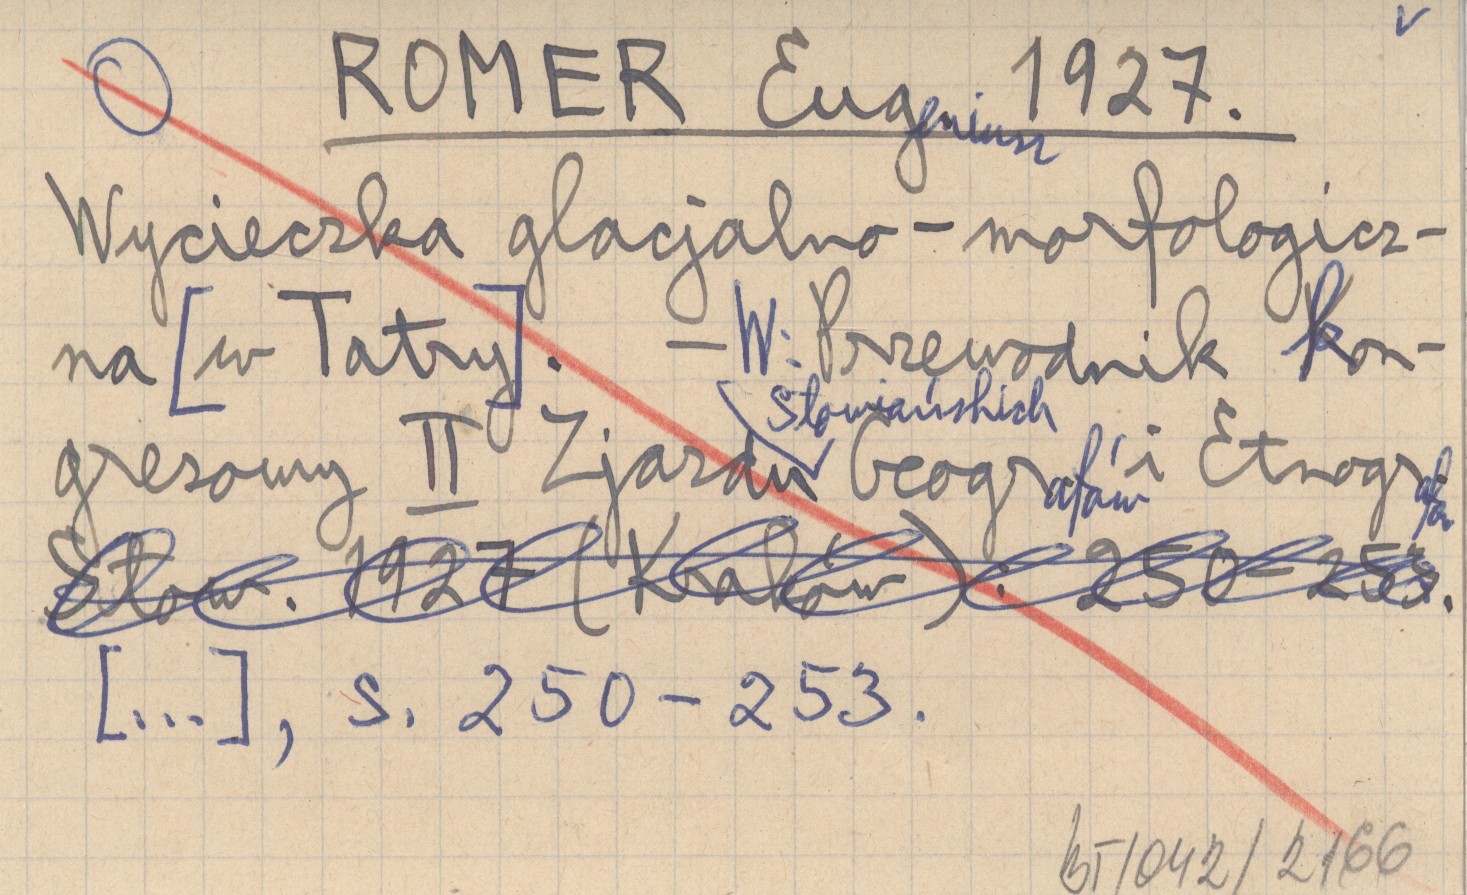 ROMER Eugeniusz 1927.
Wycieczka glacjalno-morfologicz-
na [w Tatry]. - W: Przewodnik Kon-
Słowiańskich
gresowy II Zjazdu Geografów i Etnografów
Słow. 1927 (Kraków): 250-253.
[...], s. 250-253.
BT/042/2166